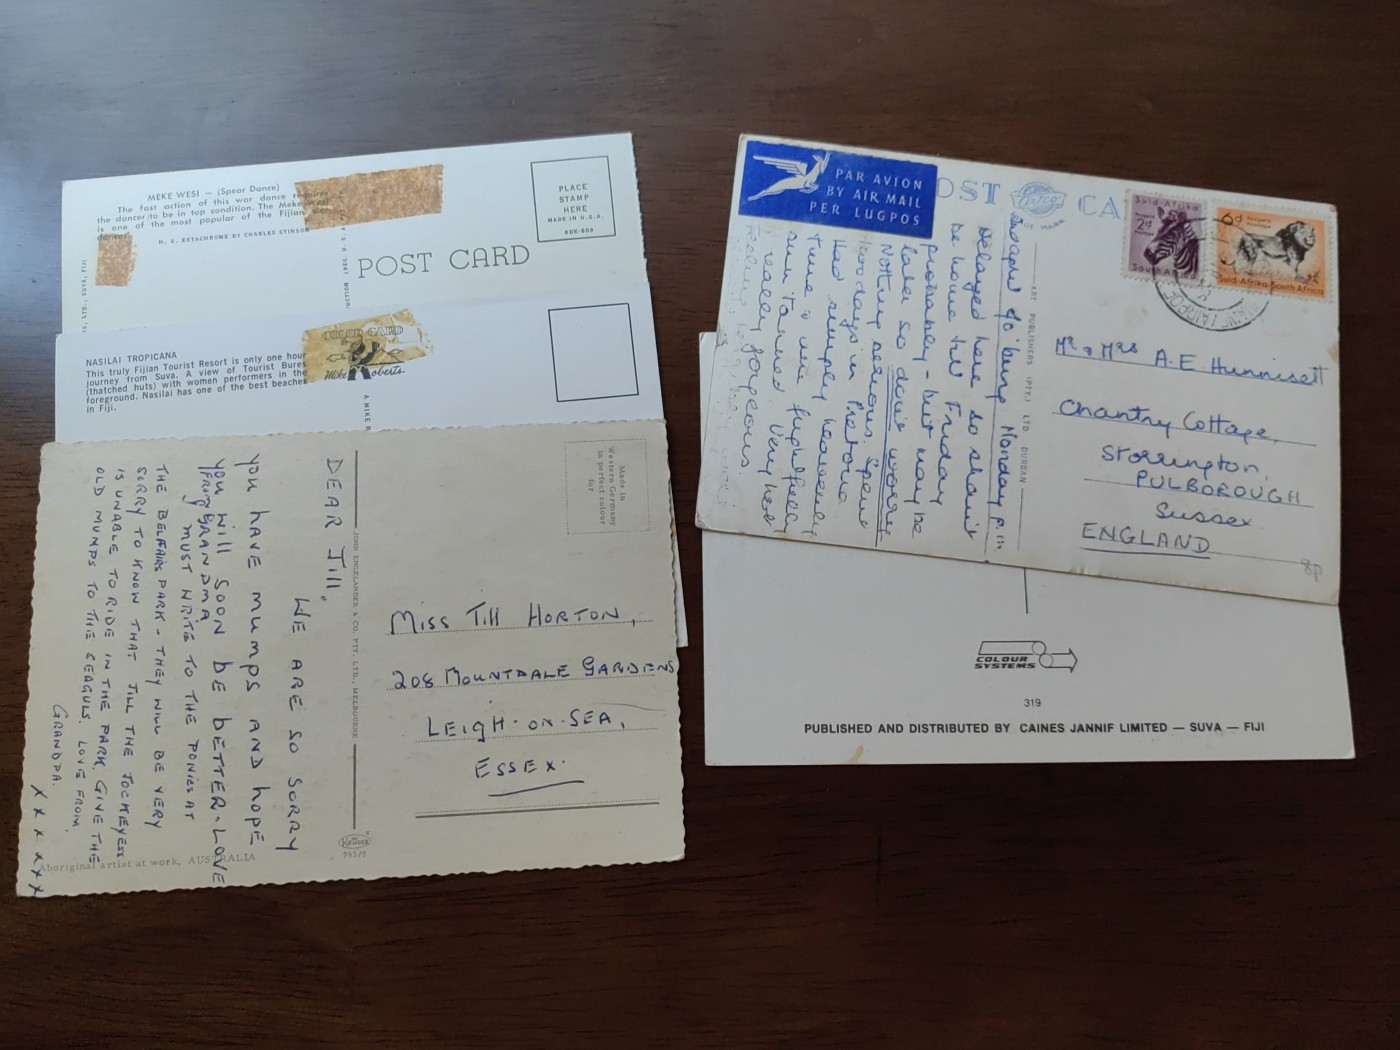 MEKE WESI — (Spear Dance)
The fast action of this war dance requires
the dancer to be in top condition. The Meke Wesi
is one of the most popular of the Fijian war
dances.
H. S. EKTACHROME BY CHARLES STINSON
PLACE
STAMP
HERE
MADE IN U.S.A.
POST CARD
NASILAI TROPICANA
This truly Fijian Tourist Resort is only one hour
journey from Suva. A view of Tourist Bures
(thatched huts) with women performers in the
foreground. Nasilai has one of the best beaches
in Fiji.
COLOR CARD
Mike Roberts
A MIKE R
Made in
Western Germany
in perfect colour
for
DEAR Jill,
WE ARE SO SORRY
you have mumps AND hope
you will soon be better. LOVE
FROM GRANDMA
MUST WRITE TO THE PONIES AT
THE BELFAIRS PARK - THEY WILL BE VERY
SORRY TO KNOW THAT JILL THE JOCKEYESS
IS UNABLE TO RIDE IN THE PARK. GIVE THE
OLD MUMPS TO THE SEAGULS. LOVE FROM
GRANDPA.
X X X X X
JOHN ENGELANDER & CO. PTY. LTD., MELBOURNE
Miss Jill HORTON,
208 MOUNTDALE GARDENS
LEIGH-ON-SEA,
ESSEX.
KRUGER
993/9
Aboriginal artist at work, AUSTRALIA
PAR AVION
BY AIR MAIL
PER LUGPOS
OST CA
Suid-Afrika
2d
South Africa
6d
Suid-Afrika-South Africa
Monday p.m.
Delayed here so shan't
be home till Friday
probably - but may be
later so don't worry
Nothing serious. Spent
days in Pretoria
Had simply heavenly
time & were frightfully
sun tanned. Very hot
& really gorgeous.
ART PUBLISHERS (PTY.) LTD. DURBAN
Mr & Mrs A.E. Hunnisett
Chantry Cottage,
Storrington,
PULBOROUGH
Sussex
ENGLAND
8p
COLOUR
SYSTEMS
319
PUBLISHED AND DISTRIBUTED BY CAINES JANNIF LIMITED — SUVA — FIJI